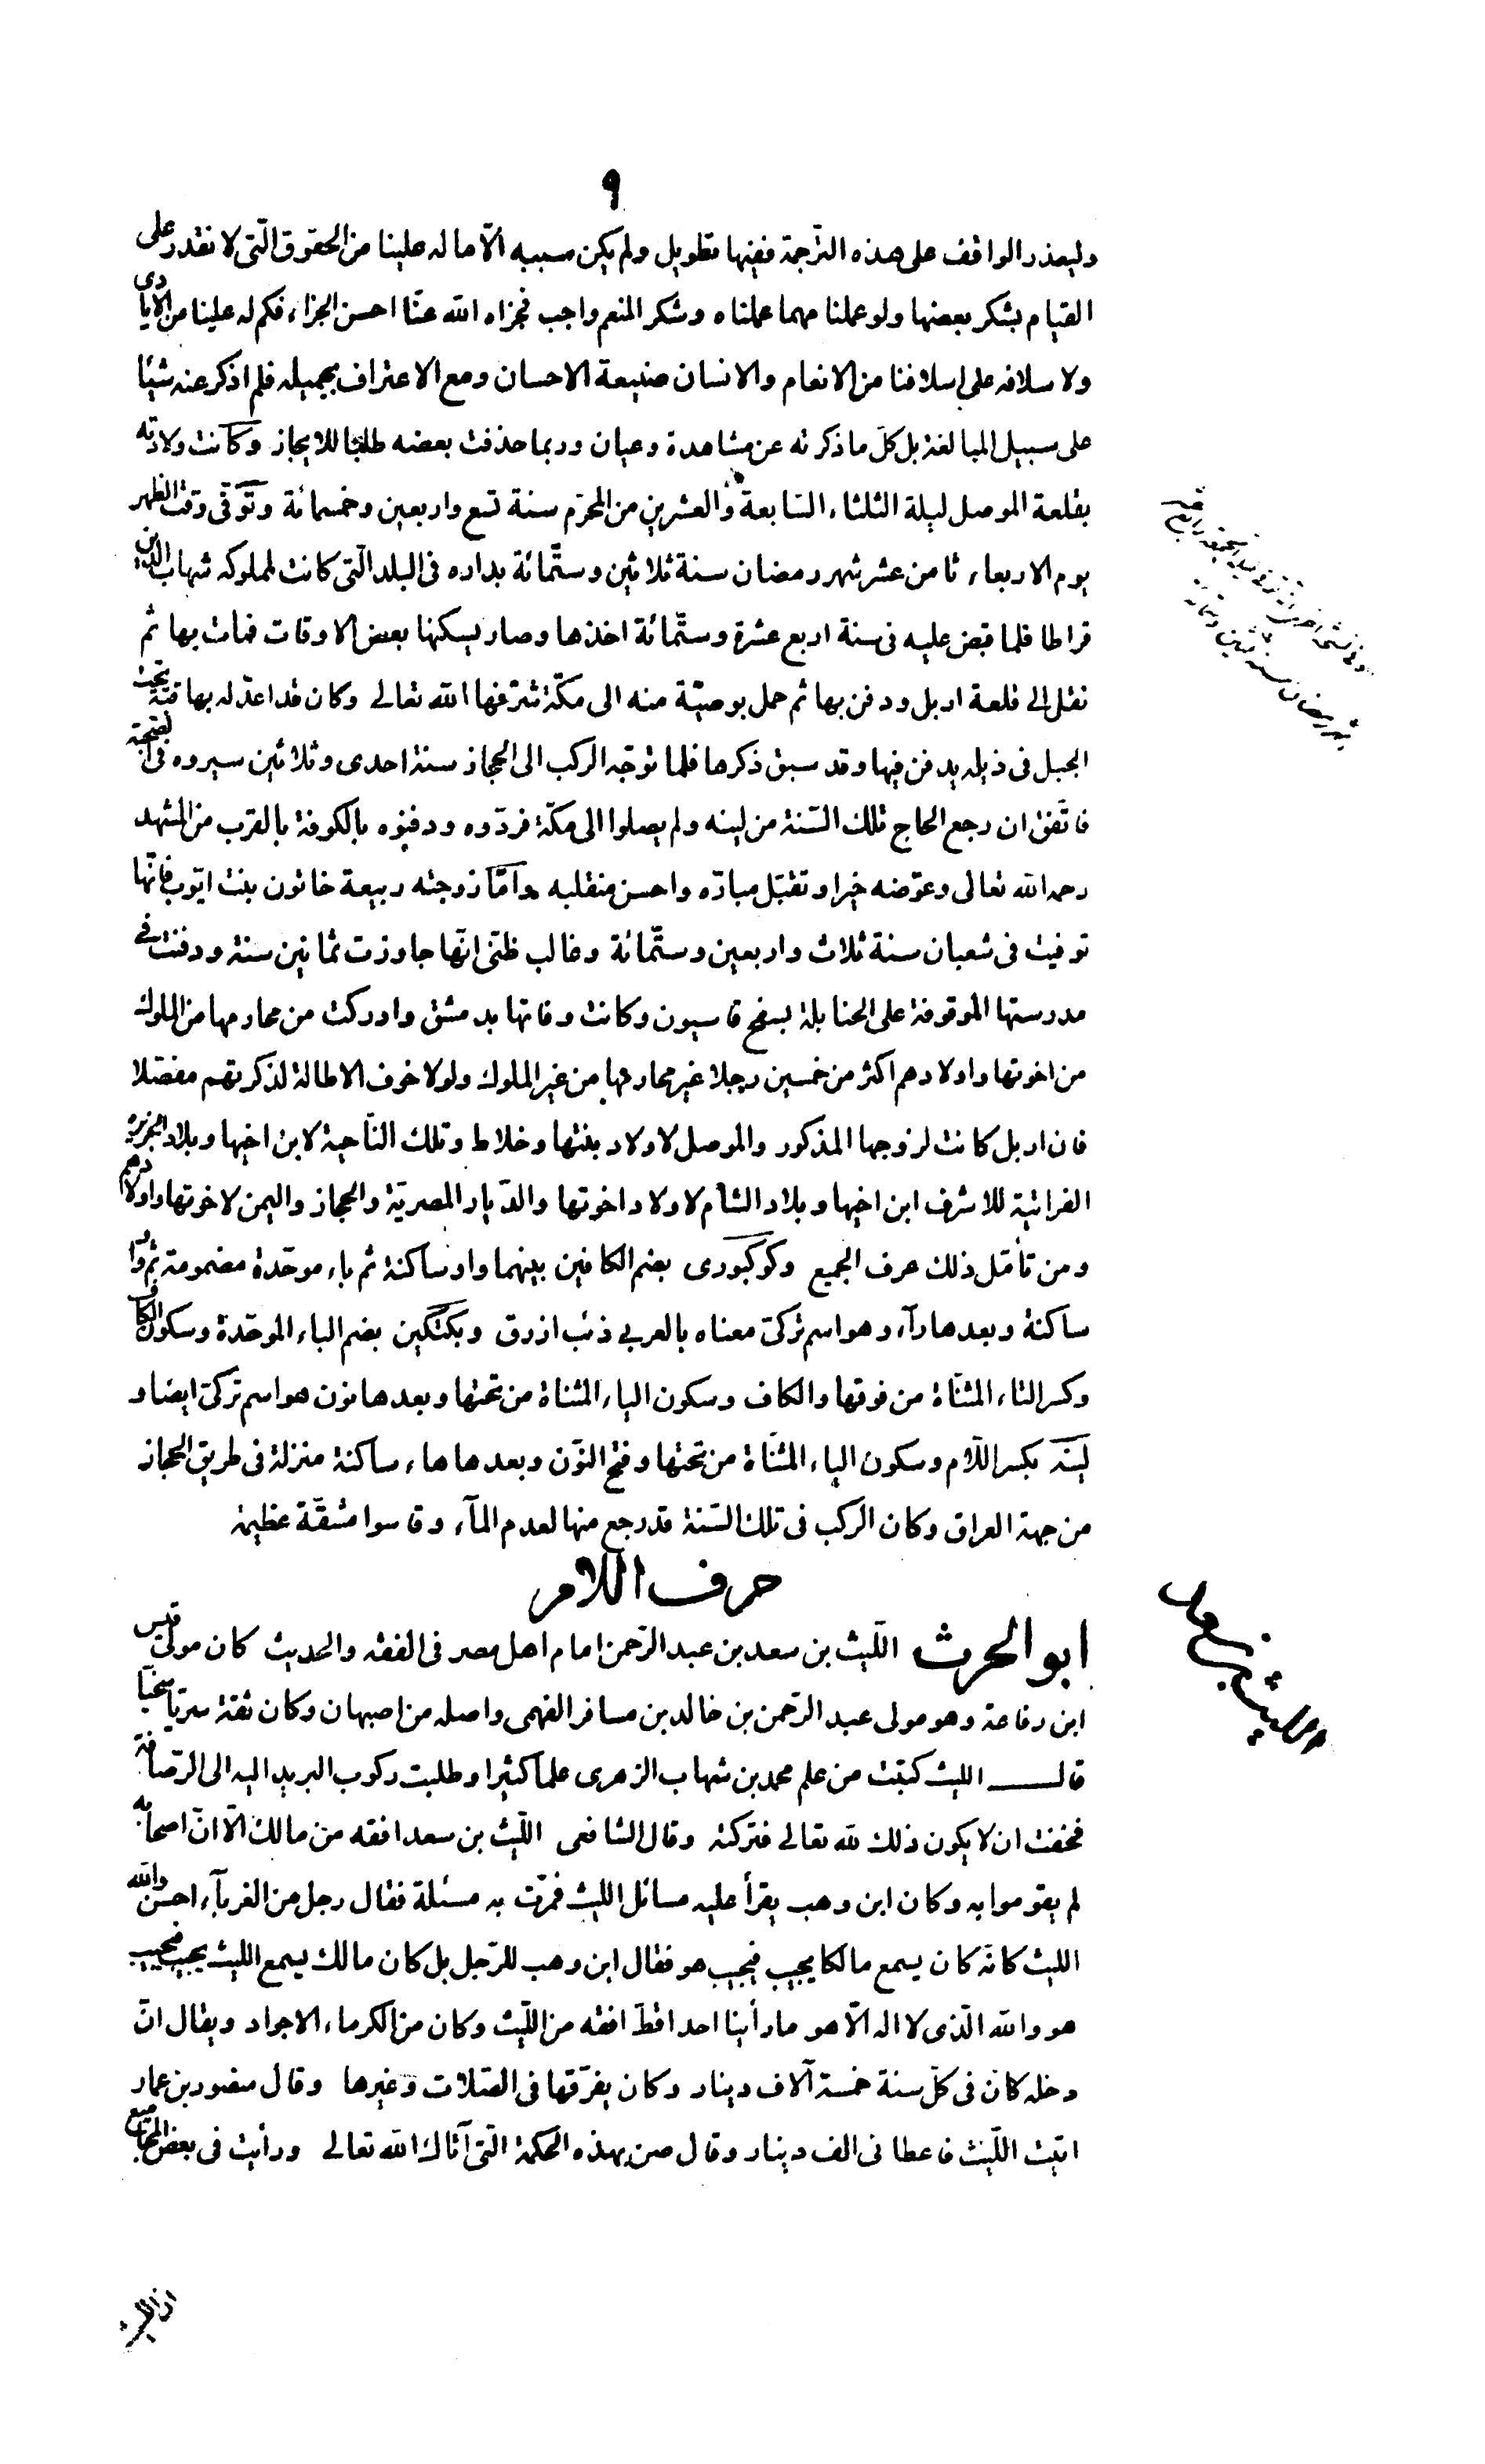 ٩
وليعذر الواقف على هذه التّرجمة ففيها تطويل ولم يكن سببه الّا ما له علينا من الحقوق الّتى لا نقدر على
القيام بشكر بعضها ولو عملنا مهما عملناه وشكر المنعم واجب فجزاه الله عنّا احسن الجزاء فكم له علينا من الايادى
ولا سلافه على اسلافنا من الانعام والانسان صنيعة الاحسان ومع الاعتراف بجميله فلم اذكر عنه شيئا
على سبيل المبالغة بل كلّ ما ذكرته عن مشاهدة وعيان وربما حذفت بعضه طلبًا للايجاز وكانت ولادته
بقلعة الموصل ليلة الثلثاء السّابعة والعشرين من المحرّم سنة تسع واربعين وخمسمائة وتوفّى وقت الظهر
يوم الاربعاء ثامن عشر شهر رمضان سنة ثلاثين وستّمائة بداره فى البلد الّتى كانت لمملوكه شهاب الدين
قراطا فلما قبض عليه فى سنة اربع عشرة وستّمائة اخذها وصار يسكنها بعض الاوقات فمات بها ثم
نقل الى قلعة اربل ودفن بها ثم حمل بوصيّة منه الى مكّة شرّفها الله تعالى وكان قد اعدّ له بها قبّة تحت
الجبل فى ذيله يدفن فيها وقد سبق ذكرها فلما توجّه الركب الى الحجاز سنة احدى وثلاثين سيروه فى الصحبة
فاتّفق ان رجع الحاج تلك السّنة من لينه ولم يصلوا الى مكّة فردّوه ودفنوه بالكوفة بالقرب من المشهد
رحمه الله تعالى وعوّضه خيرا وتقبّل مبارّه واحسن منقلبه وامّا زوجته ربيعة خاتون بنت ايّوب فانّها
توفيت فى شعبان سنة ثلاث واربعين وستّمائة وغالب ظنّى انّها جاوزت ثمانين سنة ودفنت فى
مدرستها الموقوفة على الحنابلة بسفح قاسيون وكانت وفاتها بدمشق وادركت من محارمها من الملوك
من اخوتها واولادهم اكثر من خمسين رجلا غير محارمها من غير الملوك ولولا خوف الاطالة لذكرتهم مفصّلا
فان اربل كانت لزوجها المذكور والموصل لاولاد بنتها وخلاط وتلك النّاحية لابن اخيها وبلاد الجزيرة
الفراتية للاشرف ابن اخيها وبلاد الشام لاولاد اخوتها والدّيار المصريّة والحجاز واليمن لاخوتها واولادهم
ومن تأمّل ذلك عرف الجميع وكوكبورى بضم الكافين بينهما واو ساكنة ثم باء موحّدة مضمومة ثم واو
ساكنة وبعدها رآء وهو اسم تركىّ معناه بالعربى ذئب ازرق وبكتكين بضم الباء الموحّدة وسكون الكاف
وكسر التاء المثنّاة من فوقها والكاف وسكون الياء المثناة من تحتها وبعدها نون هو اسم تركىّ ايضا و
لينه بكسر اللّام وسكون الياء المثنّاة من تحتها وفتح النّون وبعدها هاء ساكنة منزلة فى طريق الحجاز
من جهة العراق وكان الركب فى تلك السّنة قد رجع منها لعدم المآء وقاسوا مشقّة عظيمة
حرف اللام
ابو الحرث اللّيث بن سعد بن عبد الرّحمن امام اهل مصر فى الفقه والحديث كان مولى قيس
ابن رفاعة وهو مولى عبد الرّحمن بن خالد بن مسافر الفهمى واصله من اصبهان وكان ثقة سريّا سخيّا
قال الليث كتبت من علم محمد بن شهاب الزهرى علما كثيرا وطلبت ركوب البريد اليه الى الرّصافة
فخفت ان لا يكون ذلك لله تعالى فتركته وقال الشافعى اللّيث بن سعد افقه من مالك الّا انّ اصحابه
لم يقوموا به وكان ابن وهب يقرأ عليه مسائل الليث فمرّت به مسئلة فقال رجل من الغربآء احسن والله
الليث كانّه كان يسمع مالكا يجيب فيجيب هو فقال ابن وهب للرّجل بل كان مالك يسمع الليث يجيب فيجيب
هو والله الّذى لا اله الّا هو ما رأينا احدا قطّ افقه من اللّيث وكان من الكرماء الاجواد ويقال انّ
دخله كان فى كلّ سنة خمسة آلاف دينار وكان يفرّقها فى الصّلات وغيرها وقال منصور بن عمار
اتيت اللّيث فاعطانى الف دينار وقال صن بهذه الحكمة الّتى آتاك الله تعالى ورأيت فى بعض المجاميع
الليث بن سعد